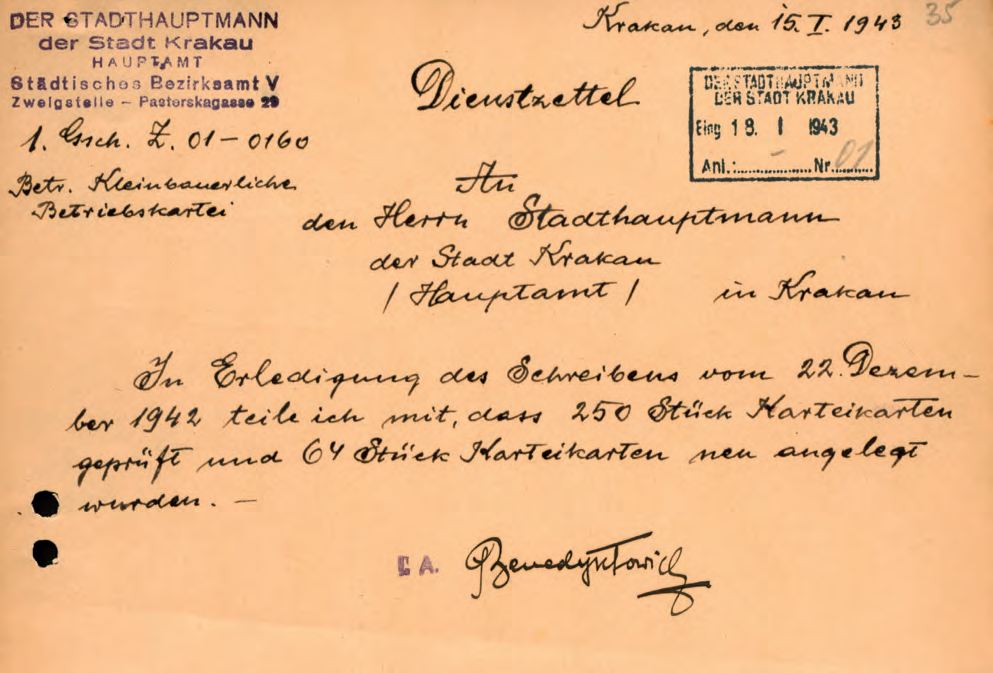 DER STADTHAUPTMANN
der Stadt Krakau
HAUPTAMT
Städtisches Bezirksamt V
Zweigstelle – Pasterskagasse 29
1. Gsch. Z. 01–0160
Betr. Kleinbäuerliche
Betriebskartei
Krakau, den 15. I. 1943
35
Dienstzettel
DER STADTHAUPTMANN
DER STADT KRAKAU
Eing 18. I 1943
Anl.: – Nr. 01
An
den Herrn Stadthauptmann
der Stadt Krakau
/ Hauptamt / in Krakau
In Erledigung des Schreibens vom 22. Dezem–
ber 1942 teile ich mit, dass 250 Stück Karteikarten
geprüft und 64 Stück Karteikarten neu angelegt
wurden. –
I. A. Benedyktowicz